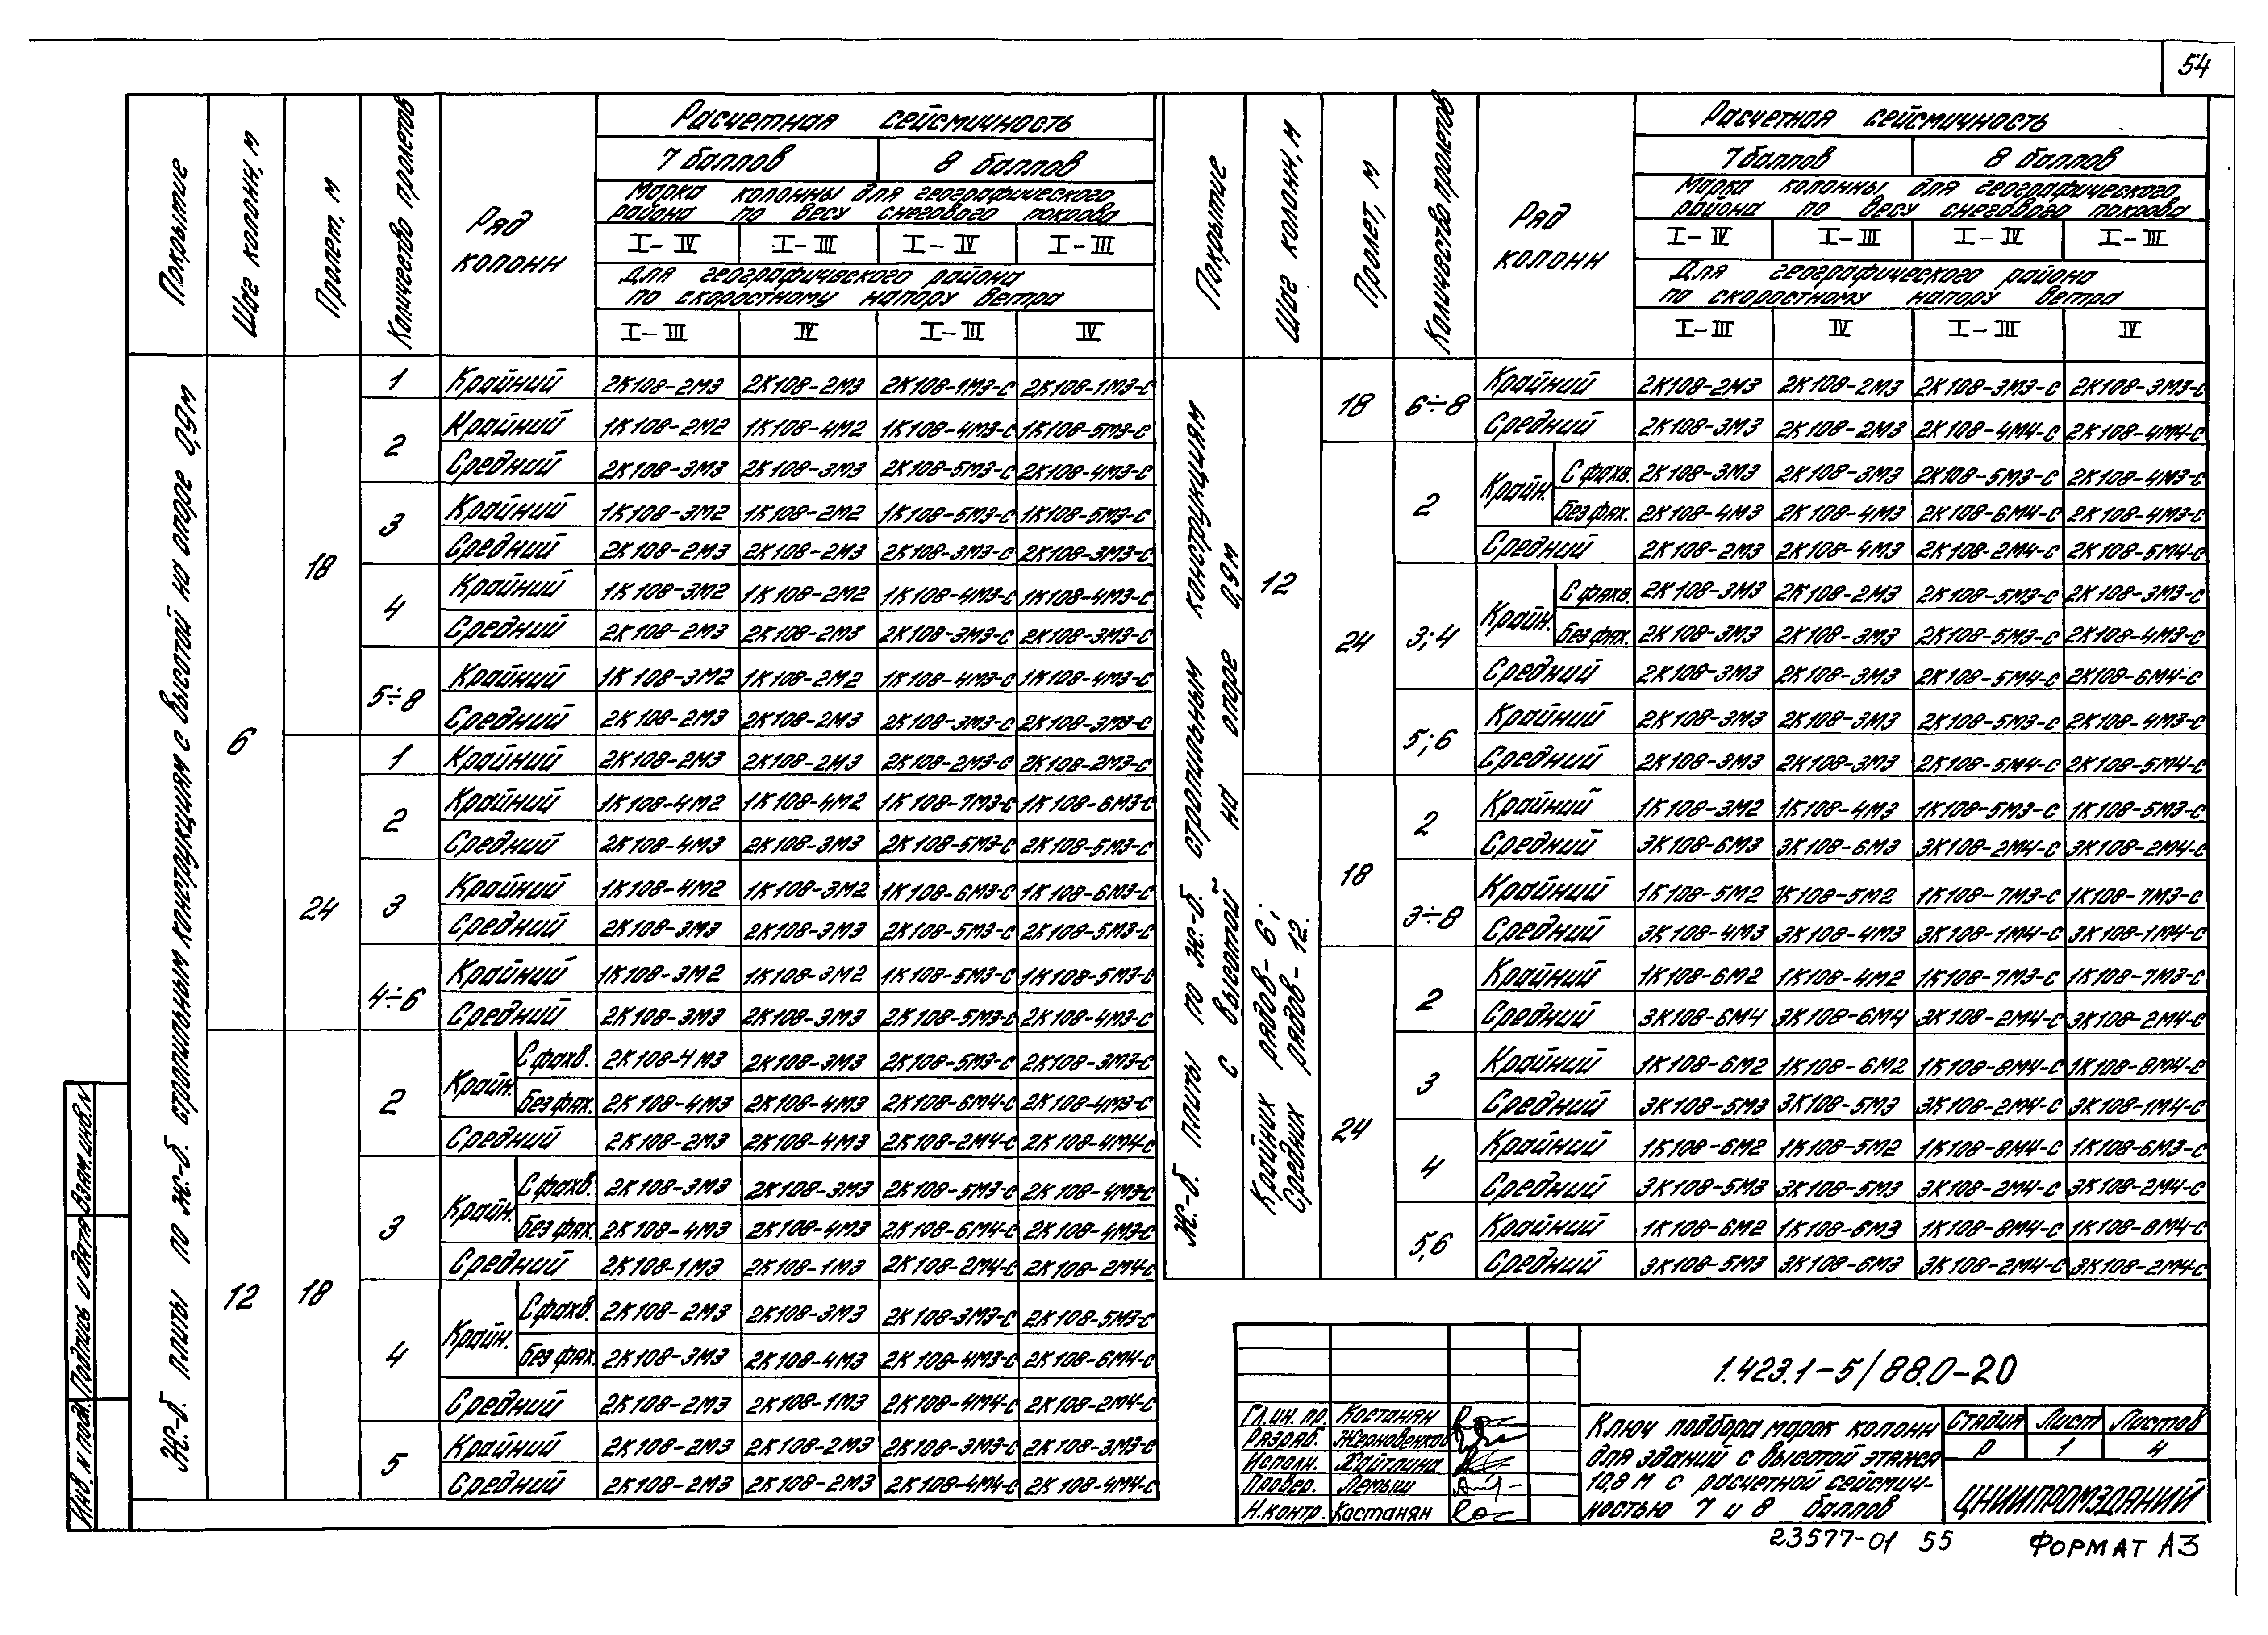 54
Покрытие
Шаг колонн, м
Пролет, м
Количество пролетов
Ряд колонн
Расчетная сейсмичность
7 баллов 8 баллов
Марка колонны для географического
района по весу снегового покрова
I-IV I-III I-IV I-III
Для географического района
по скоростному напору ветра
I-III IV I-III IV
Ж.-б. плиты по ж.-б. стропильным конструкциям с высотой на опоре 0,9м
6
18
1 Крайний 2К108-2М3 2К108-2М3 2К108-1М3-С 2К108-1М3-С
2 Крайний 1К108-2М2 1К108-4М2 1К108-4М3-С 1К108-5М3-С
Средний 2К108-3М3 2К108-3М3 2К108-5М3-С 2К108-4М3-С
3 Крайний 1К108-3М2 1К108-2М2 1К108-5М3-С 1К108-5М3-С
Средний 2К108-2М3 2К108-2М3 2К108-3М3-С 2К108-3М3-С
4 Крайний 1К108-3М2 1К108-2М2 1К108-4М3-С 1К108-4М3-С
Средний 2К108-2М3 2К108-2М3 2К108-3М3-С 2К108-3М3-С
5÷8 Крайний 1К108-3М2 1К108-2М2 1К108-4М3-С 1К108-4М3-С
Средний 2К108-2М3 2К108-2М3 2К108-3М3-С 2К108-3М3-С
24
1 Крайний 2К108-2М3 2К108-2М3 2К108-2М3-С 2К108-2М3-С
2 Крайний 1К108-4М2 1К108-4М2 1К108-7М3-С 1К108-6М3-С
Средний 2К108-4М3 2К108-3М3 2К108-5М3-С 2К108-5М3-С
3 Крайний 1К108-4М2 1К108-3М2 1К108-6М3-С 1К108-6М3-С
Средний 2К108-3М3 2К108-3М3 2К108-5М3-С 2К108-5М3-С
4÷6 Крайний 1К108-3М2 1К108-3М2 1К108-5М3-С 1К108-5М3-С
Средний 2К108-3М3 2К108-3М3 2К108-5М3-С 2К108-4М3-С
12
18
2 Крайн. С фахв. 2К108-4М3 2К108-3М3 2К108-5М3-С 2К108-3М3-С
Без фах. 2К108-4М3 2К108-4М3 2К108-6М4-С 2К108-4М3-С
Средний 2К108-2М3 2К108-4М3 2К108-2М4-С 2К108-4М4-С
3 Крайн. С фахв. 2К108-3М3 2К108-3М3 2К108-5М3-С 2К108-4М3-С
Без фах. 2К108-4М3 2К108-4М3 2К108-6М4-С 2К108-4М3-С
Средний 2К108-1М3 2К108-1М3 2К108-2М4-С 2К108-2М4-С
4 Крайн. С фахв. 2К108-2М3 2К108-3М3 2К108-3М3-С 2К108-5М3-С
Без фах. 2К108-3М3 2К108-4М3 2К108-4М3-С 2К108-6М4-С
Средний 2К108-2М3 2К108-1М3 2К108-4М4-С 2К108-2М4-С
5 Крайний 2К108-2М3 2К108-2М3 2К108-3М3-С 2К108-3М3-С
Средний 2К108-2М3 2К108-2М3 2К108-4М4-С 2К108-4М4-С
Покрытие
Шаг колонн, м
Пролет, м
Количество пролетов
Ряд колонн
Расчетная сейсмичность
7 баллов 8 баллов
Марка колонны для географического
района по весу снегового покрова
I-IV I-III I-IV I-III
Для географического района
по скоростному напору ветра
I-III IV I-III IV
Ж.-б. плиты по ж.-б. стропильным конструкциям
с высотой на опоре 0,9м
12
18
6÷8 Крайний 2К108-2М3 2К108-2М3 2К108-3М3-С 2К108-3М3-С
Средний 2К108-3М3 2К108-2М3 2К108-4М4-С 2К108-4М4-С
24
2 Крайн. С фахв. 2К108-3М3 2К108-3М3 2К108-5М3-С 2К108-4М3-С
Без фах. 2К108-4М3 2К108-4М3 2К108-6М4-С 2К108-4М3-С
Средний 2К108-2М3 2К108-4М3 2К108-2М4-С 2К108-5М4-С
3;4 Крайн. С фахв. 2К108-3М3 2К108-2М3 2К108-5М3-С 2К108-3М3-С
Без фах. 2К108-3М3 2К108-3М3 2К108-5М3-С 2К108-4М3-С
Средний 2К108-3М3 2К108-3М3 2К108-5М4-С 2К108-6М4-С
5;6 Крайний 2К108-3М3 2К108-3М3 2К108-5М3-С 2К108-4М3-С
Средний 2К108-3М3 2К108-3М3 2К108-5М4-С 2К108-5М4-С
Крайних рядов-6;
Средних рядов-12.
18
2 Крайний 1К108-3М2 1К108-4М3 1К108-5М3-С 1К108-5М3-С
Средний 3К108-6М3 3К108-6М3 3К108-2М4-С 3К108-2М4-С
3÷8 Крайний 1К108-5М2 1К108-5М2 1К108-7М3-С 1К108-7М3-С
Средний 3К108-4М3 3К108-4М3 3К108-1М4-С 3К108-1М4-С
24
2 Крайний 1К108-6М2 1К108-4М2 1К108-7М3-С 1К108-7М3-С
Средний 3К108-6М4 3К108-6М4 3К108-2М4-С 3К108-2М4-С
3 Крайний 1К108-6М2 1К108-6М2 1К108-8М4-С 1К108-8М4-С
Средний 3К108-5М3 3К108-5М3 3К108-2М4-С 3К108-1М4-С
4 Крайний 1К108-6М2 1К108-5М2 1К108-8М4-С 1К108-6М3-С
Средний 3К108-5М3 3К108-5М3 3К108-2М4-С 3К108-2М4-С
5,6 Крайний 1К108-6М2 1К108-6М3 1К108-8М4-С 1К108-8М4-С
Средний 3К108-5М3 3К108-6М3 3К108-2М4-С 3К108-2М4-С
Инв. N подл. Подпись и дата Взам. инв. N
Гл. ин. пр. Костанян
Разраб. Жерновенков
Исполн. Хайтлина
Провер. Лемыш
Н.контр. Костанян
1.423.1-5/88.0-20
Ключ подбора марок колонн
для зданий с высотой этажа
10,8 м с расчетной сейсмич-
ностью 7 и 8 баллов
Стадия Лист Листов
Р 1 4
ЦНИИПРОМЗДАНИЙ
23577-01 55
Формат А3